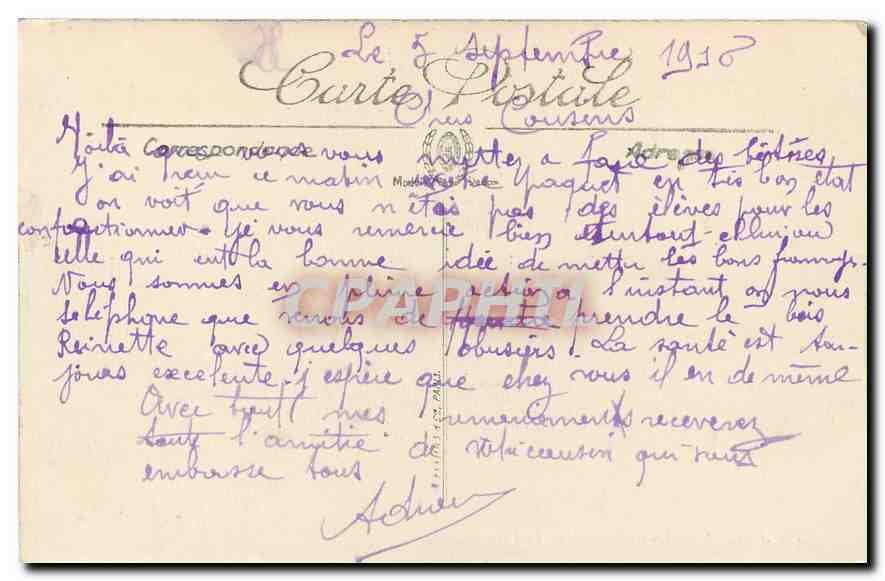 Le 5 septembre 1918
Carte Postale
Chers Cousens
Correspondance
Adresse
Voilà vous vous mettez a faire des bêtises
j'ai reçu ce matin votre paquet en tès bon état
on voit que vous n'êtes pas des élèves pour les
confectionner. Je vous remercie bien surtout celui ou
celle qui eut la bonne idée de mettre les bons fromages.
Nous sommes en pleine action a l'instant on nous
teléphone que venons de prendre le bois
Reinette avec quelques obusiers. La santé est tou-
jours excelente. j'espère que chez vous il en de même
Avec tout mes remerciements recevez
toute l'amitié de votre cousin qui vous
embrasse tous
Adrien
CPAPHIL